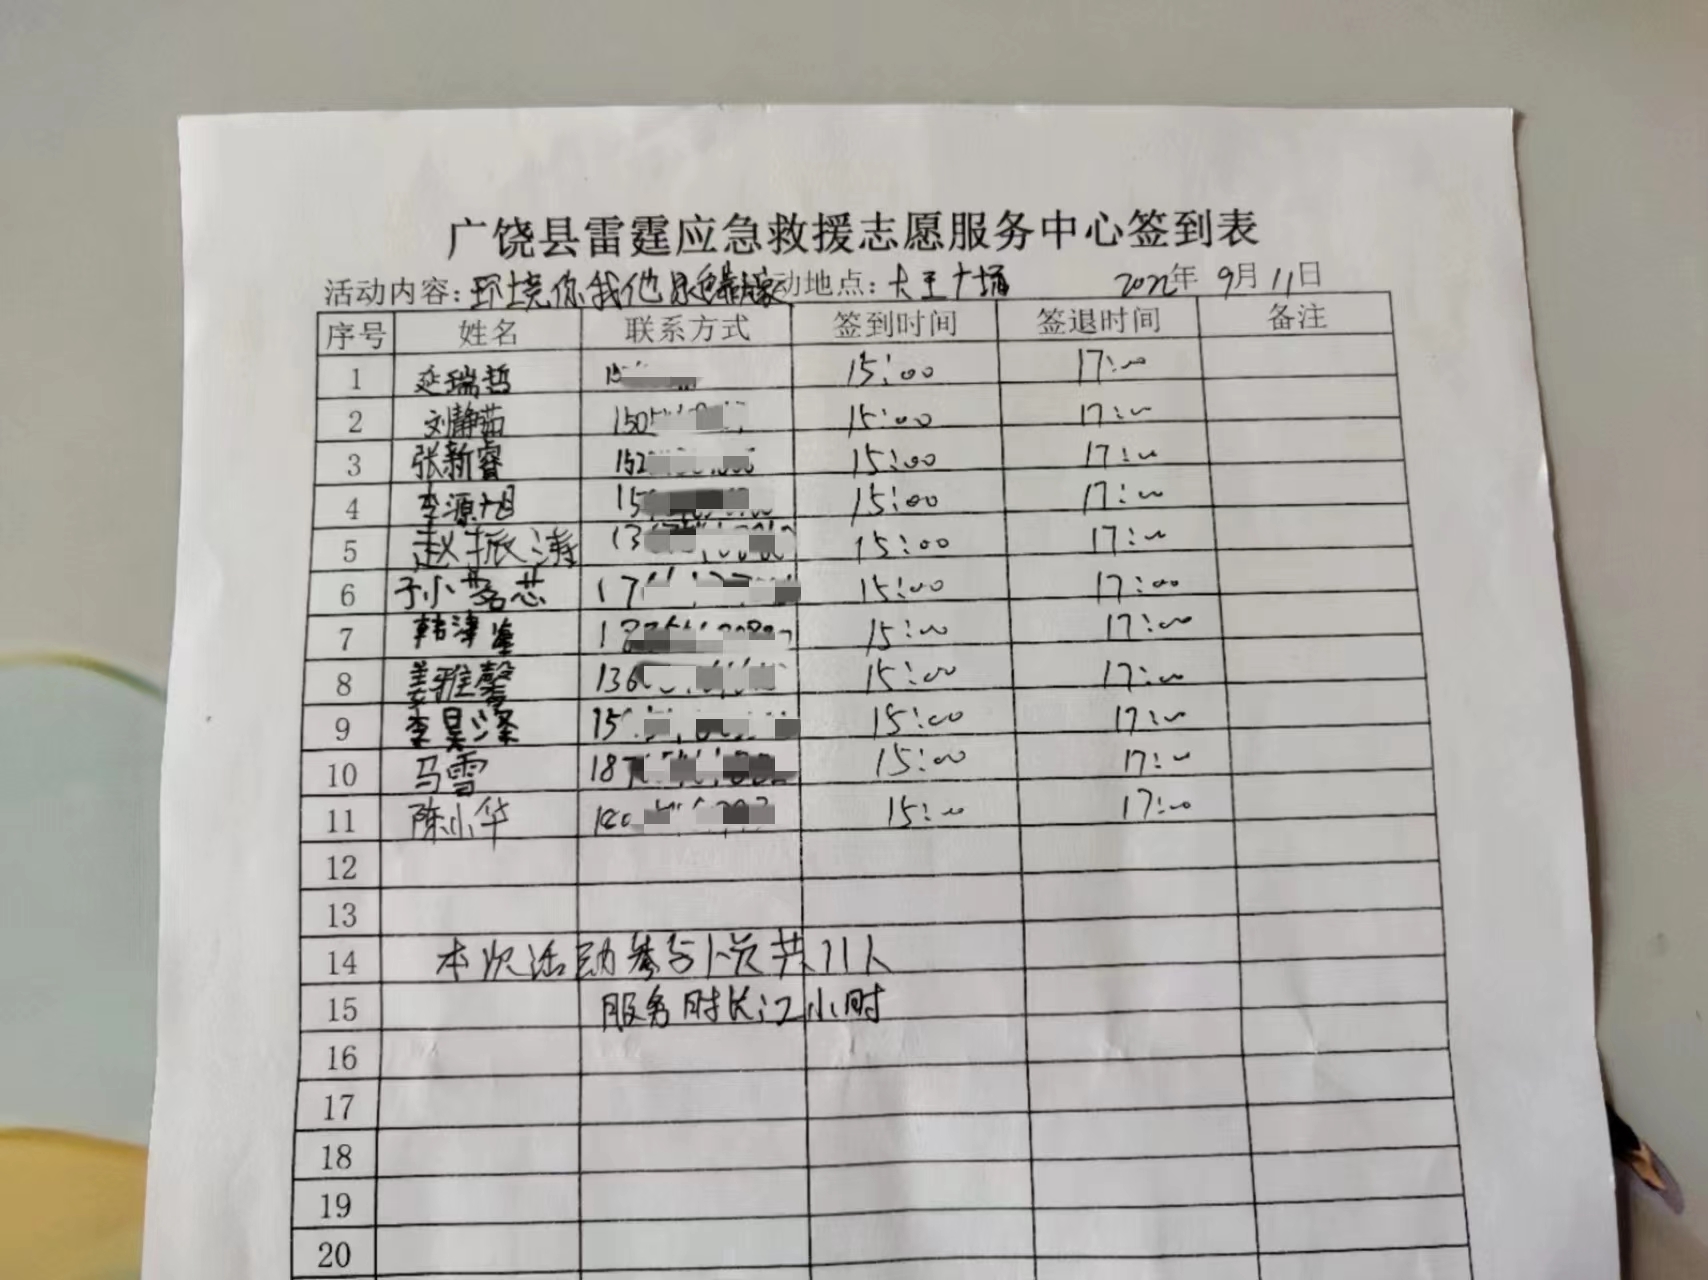 广饶县雷霆应急救援志愿服务中心签到表
活动内容：环境你我他 动地点：大王广场 2022年 9月 11日
序号 姓名 联系方式 签到时间 签退时间 备注
1 延瑞哲 15:00 17:00
2 刘静茹 150 15:00 17:00
3 张新睿 152 15:00 17:00
4 李源旭 15 15:00 17:00
5 赵振涛 13 15:00 17:00
6 17 15:00 17:00
7 韩津 18 15:00 17:00
8 姜雅馨 136 15:00 17:00
9 李昊泽 15 15:00 17:00
10 马雪 18 15:00 17:00
11 陈小华 15:00 17:00
12
13
14 本次活动参与人员共11人
15 服务时长:2小时
16
17
18
19
20